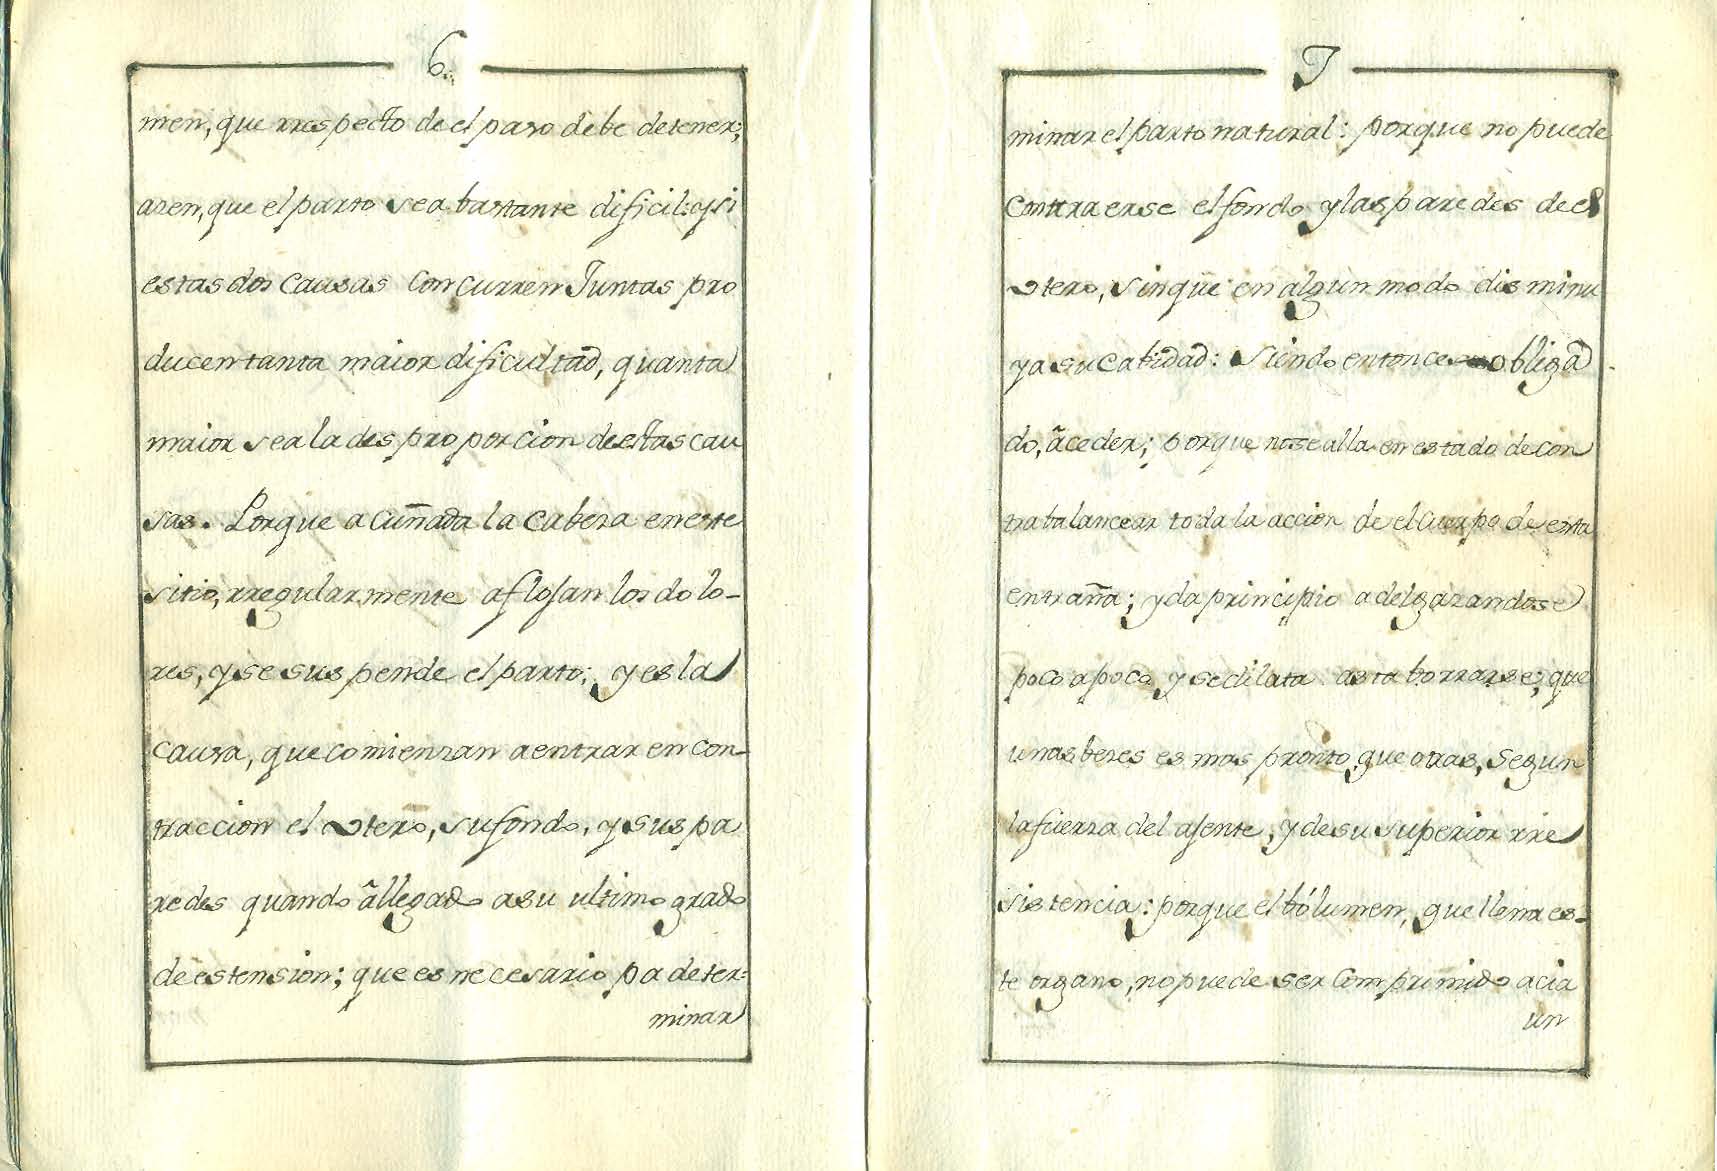 6.
men, que rrespecto de el paso debe detener;
asen, que el parto sea bastante dificil: y si
estas dos causas concurren Juntas pro
ducen tanta maior dificultad, quanta
maior sea la des proporcion de estas cau
sas. Porque acuñada la cabesa en este
sitio, rregularmente aflojan los dolo-
res, y se suspende el parto; y es la
causa, que comiensan a entrar en con-
traccion el utero, su fondo, y sus pa
redes quando ã llegado a su ultimo grado
de estension; que es necesario pa deter=
minar
7
minar el parto natural: porque no puede
contraerse el fondo y las paredes de el
utero, sin que en algun modo disminu
ya su cabidad: siendo entonces obliga
do, ã ceder; porque no se alla en estado de con
trabalancear toda la accion de el cuerpo de esta
entraña; y da principio adelgazandose
poco a poco y se dilata asta borrarse; que
unas beses es mas pronto que otras, segun
la fuersa del ajente, y de su superior rre
sistencia: porque el bólumen, que llena es-
te organo, no puede ser comprimido acia
un